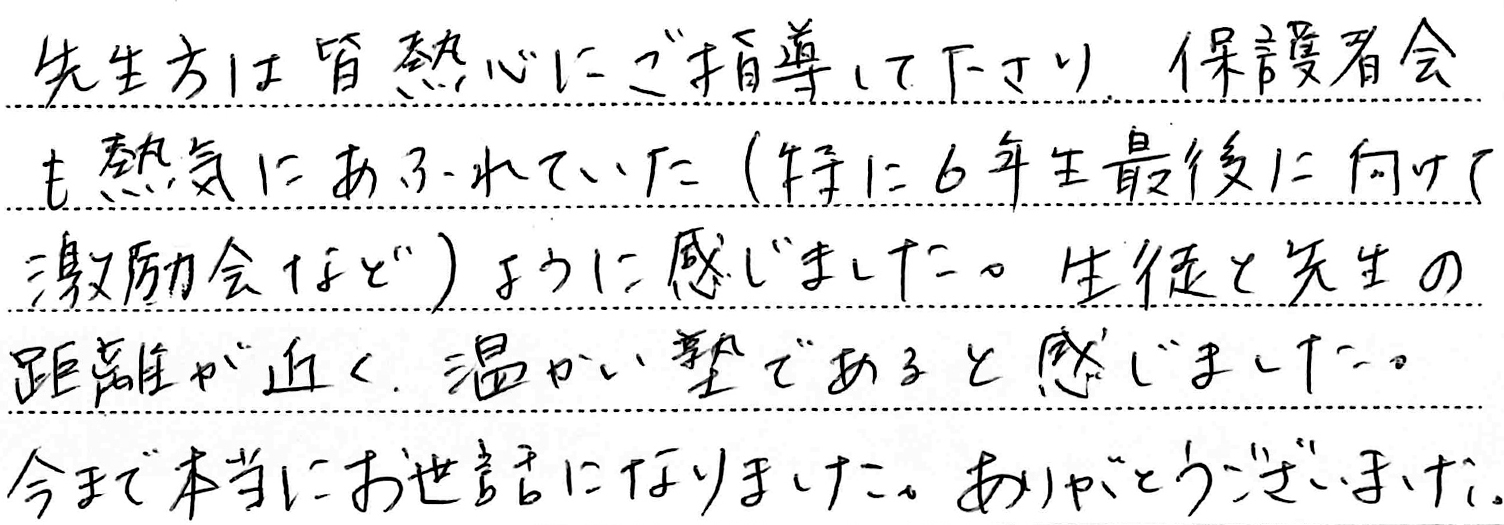 先生方は皆熱心にご指導して下さり、保護者会
も熱気にあふれていた(特に6年生最後に向けて
激励会など)ように感じました。生徒と先生の
距離が近く、温かい塾であると感じました。
今まで本当にお世話になりました。ありがとうございました。